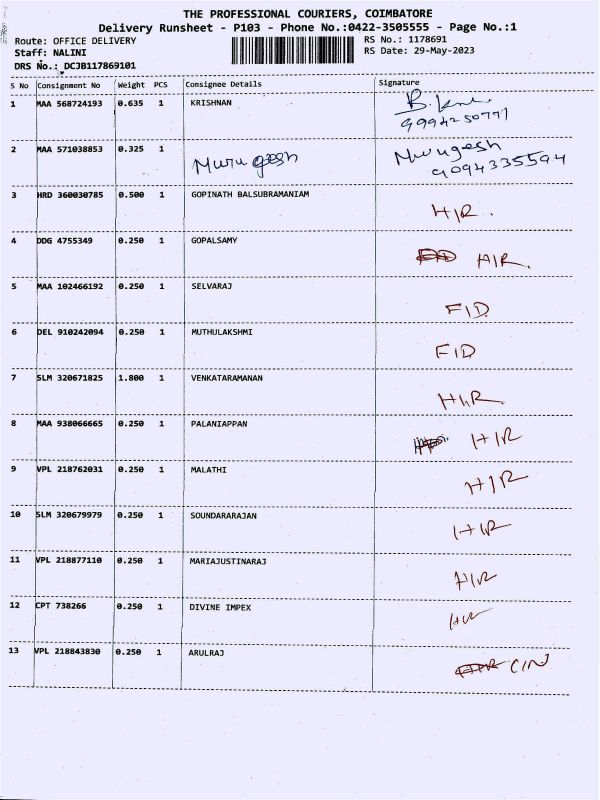 THE PROFESSIONAL COURIERS, COIMBATORE
Delivery Runsheet - P103 - Phone No.:0422-3505555 - Page No.:1
Route: OFFICE DELIVERY RS No.: 1178691
Staff: NALINI RS Date: 29-May-2023
DRS No.: DCJB117869101
S No Consignment No Weight PCS Consignee Details Signature
1 MAA 568724193 0.635 1 KRISHNAN B.
2 MAA 571038853 0.325 1 Murugesh Murugesh
9094335594
3 HRD 360030785 0.500 1 GOPINATH BALSUBRAMANIAM H/R.
4 DDG 4755349 0.250 1 GOPALSAMY H/R.
5 MAA 102466192 0.250 1 SELVARAJ F/D.
6 DEL 910242094 0.250 1 MUTHULAKSHMI F/D
7 SLM 320671825 1.800 1 VENKATARAMANAN H/R.
8 MAA 938066665 0.250 1 PALANIAPPAN H/R
9 VPL 218762031 0.250 1 MALATHI H/R
10 SLM 320679979 0.250 1 SOUNDARARAJAN H/R
11 VPL 218877110 0.250 1 MARIAJUSTINARAJ H/R
12 CPT 738266 0.250 1 DIVINE IMPEX H/R
13 VPL 218843830 0.250 1 ARULRAJ C/N